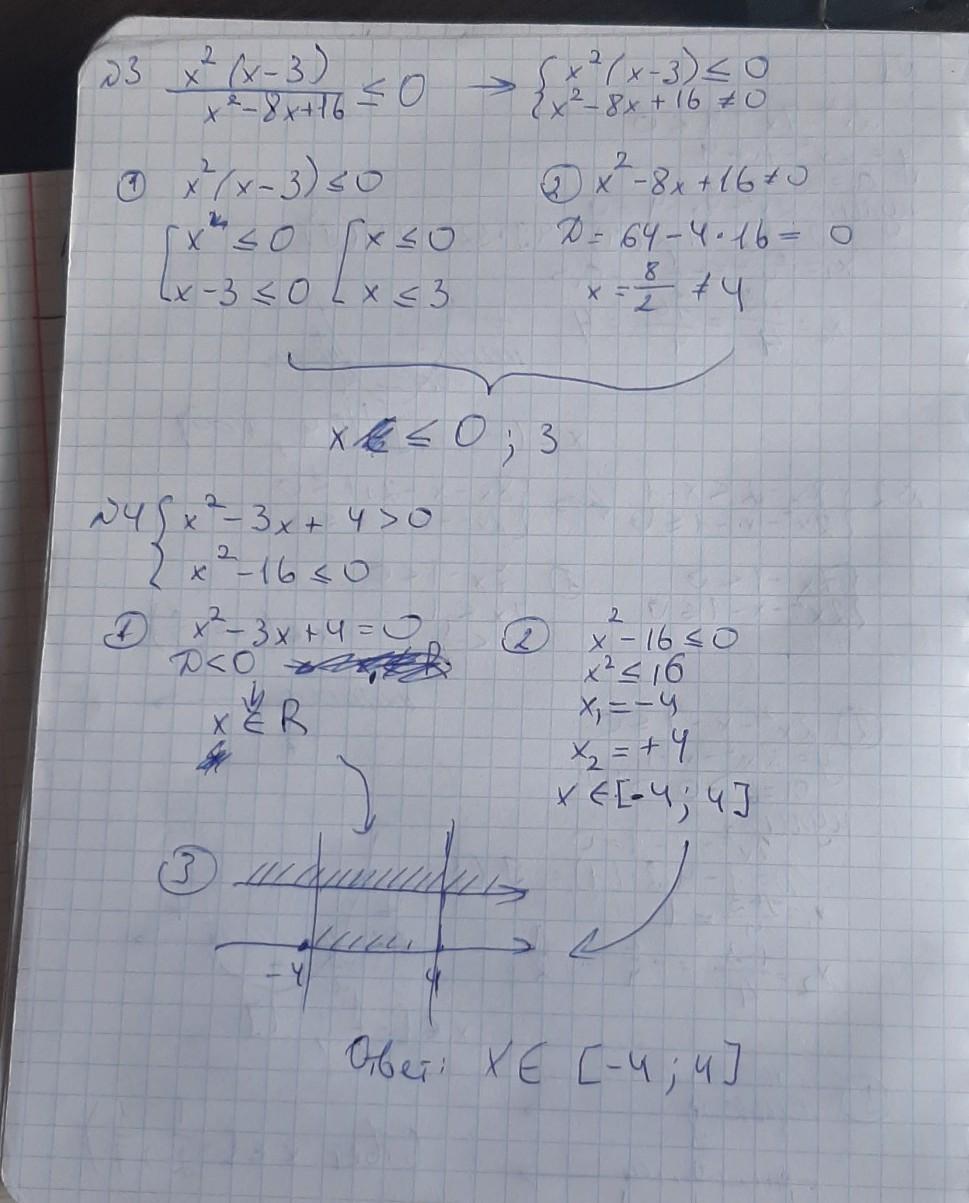 №3 x²(x-3)/x²-8x+16 ≤ 0 → { x²(x-3) ≤ 0
{ x²-8x+16 ≠ 0
① x²(x-3) ≤ 0
[ x² ≤ 0 [ x ≤ 0
[ x-3 ≤ 0 [ x ≤ 3
② x²-8x+16 ≠ 0
D = 64-4·16 = 0
x = 8/2 ≠ 4
x ≤ 0 ; 3
№4 { x²-3x+4>0
{ x²-16 ≤ 0
① x²-3x+4=0
D<0
↓
x ∈ R
② x²-16 ≤ 0
x² ≤ 16
x₁ = -4
x₂ = +4
x ∈ [-4; 4]
③
-4 4
Ответ: x ∈ [-4; 4]